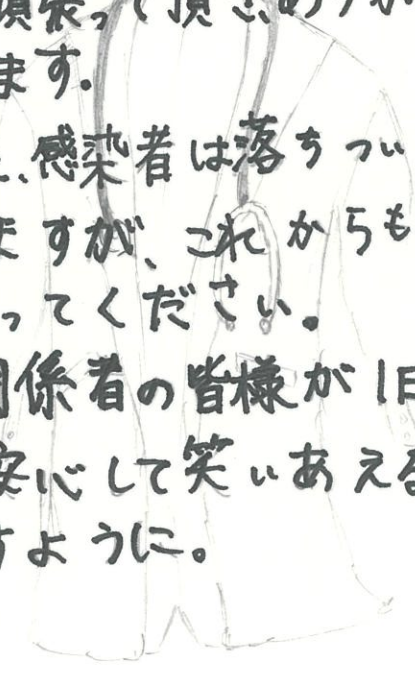 頑張って頂きありが
ます。
、感染者は落ちつい
ますが、これからも
ってください。
関係者の皆様が1日
安心して笑いあえる
すように。